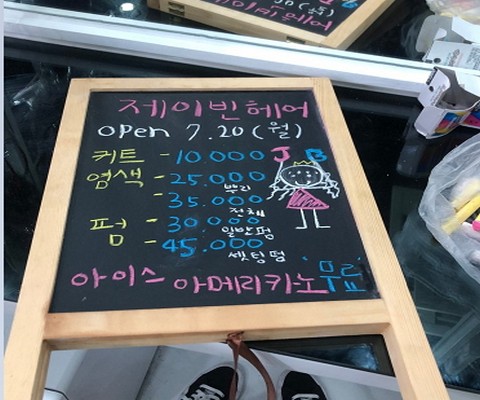 제이빈헤어
open 7.20(월)
커트 - 10.000
J B
염색 - 25.000
뿌리
- 35.000
전체
펌 - 30.000
일반펌
- 45.000
셋팅펌
아이스 아메리카노 '무료'